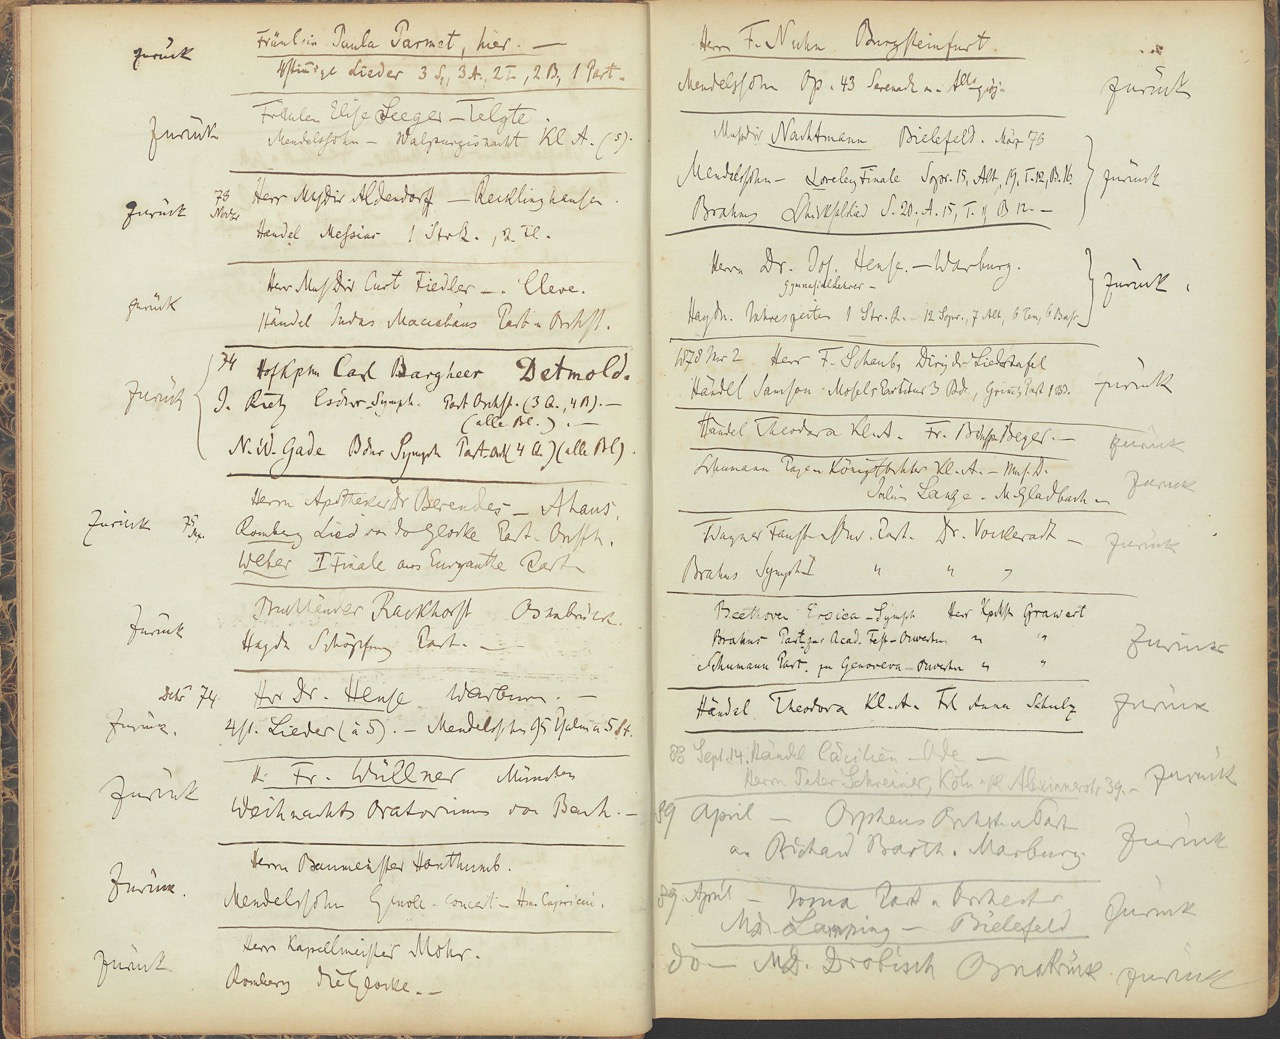 zurück
Fräulein Paula Parmet, hier. —
4stimmige Lieder 3 S., 3 A., 2 T., 2 B., 1 Part.
zurück
Fräulein Elise Seeger — Telgte.
Mendelssohn — Walpurgisnacht Kl. A. (5).
zurück
73
Herr MusDir Aldendorff — Recklinghausen.
Händel Messias 1 Strq., 2 Vl.
zurück
Herr MusDir Curt Fiedler —. Cleve.
Händel Judas Maccabäus Part u Orchst.
zurück
74
HofKpm Carl Bargheer Detmold.
J. Rietz Esdur-Symph. Part Orchst. (3 Q., 4 B). —
(alle Bl.). —
N. W. Gade Bdur Symph Part. Orch (4 Q.) (alle Bl).
zurück
75
Herrn Apotheker Dr Berendes — Ahaus.
Romberg Lied von der Glocke Part. Orchst.
Weber I Finale aus Euryanthe Part
zurück
Rackhorst Osnabrück.
Haydn Schöpfung Part. —
zurück
Dcbr 74.
Herr Dr. Hense Warburg. —
4st. Lieder (à 5). — Mendelssohn 95 Psalm à 5 St.
zurück
H. Fr. Wüllner München
Weihnachts Oratorium von Bach. —
zurück
Herrn Baumeister Hanthumb.
Mendelssohn Gmoll-Concert — Hm. Capriccio.
zurück
Herr Kapellmeister Mohr.
Romberg die Glocke. —
Herrn F. Nuhn Burgsteinfurt
Mendelssohn Op. 43 Serenade u. Allo gioj.
zurück
MusDir Nachtmann Bielefeld. März 76
Mendelssohn — Loreley Finale Sopr. 15, Alt, 14, T. 12, B. 16.
zurück
Brahms Schicksalslied S. 20, A. 15, T. 11 B 12. —
Herrn Dr. Jos. Hense. — Warburg.
Gymnasiallehrer —
zurück
Haydn. Jahreszeiten 1 Str. Q. — 12 Sopr., 7 Alt, 6 Ten, 6 Bass.
1878 Nvr 2 Herr F. Schaub, Dirig der Liedertafel
Händel Samson — Mosels Partitur 3 Bd.
zurück
Händel Theodora Kl. A. Fr.
zurück
Schumann Pagen Königstochter Kl. A. — Mus. D.
Julius Lange. M. Gladbach —
zurück
Wagner Faust-Ouv. Part. Dr. Vonkeradt —
zurück
Brahms Symph I " " "
Beethoven Eroica-Symph Herr Kpllm Grawert
Brahms Part. zur Acad. Fest-Ouverture " "
Schumann Part. zu Genoveva-Ouverture " "
zurück
Händel Theodora Kl. A. Frl Anna Schulz
zurück
88 Sept. 14. Händel Cäcilien-Ode —
Herrn Pater Schreiner, Köln a/R Alexianerstr 39. —
zurück
89 April — Orpheus Orchst u Part
an Richard Barth. Marburg
zurück
89. April — Part u Orchester
MD. Lamping — Bielefeld
zurück
do — MD. Drobisch Osnabrück
zurück